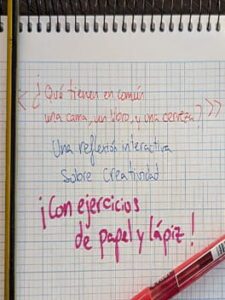 << ¿Qué tienen en común
una cama, un libro, y una cerveza? >>
Una reflexión interactiva
sobre creatividad
¡Con ejercicios
de papel y lápiz!